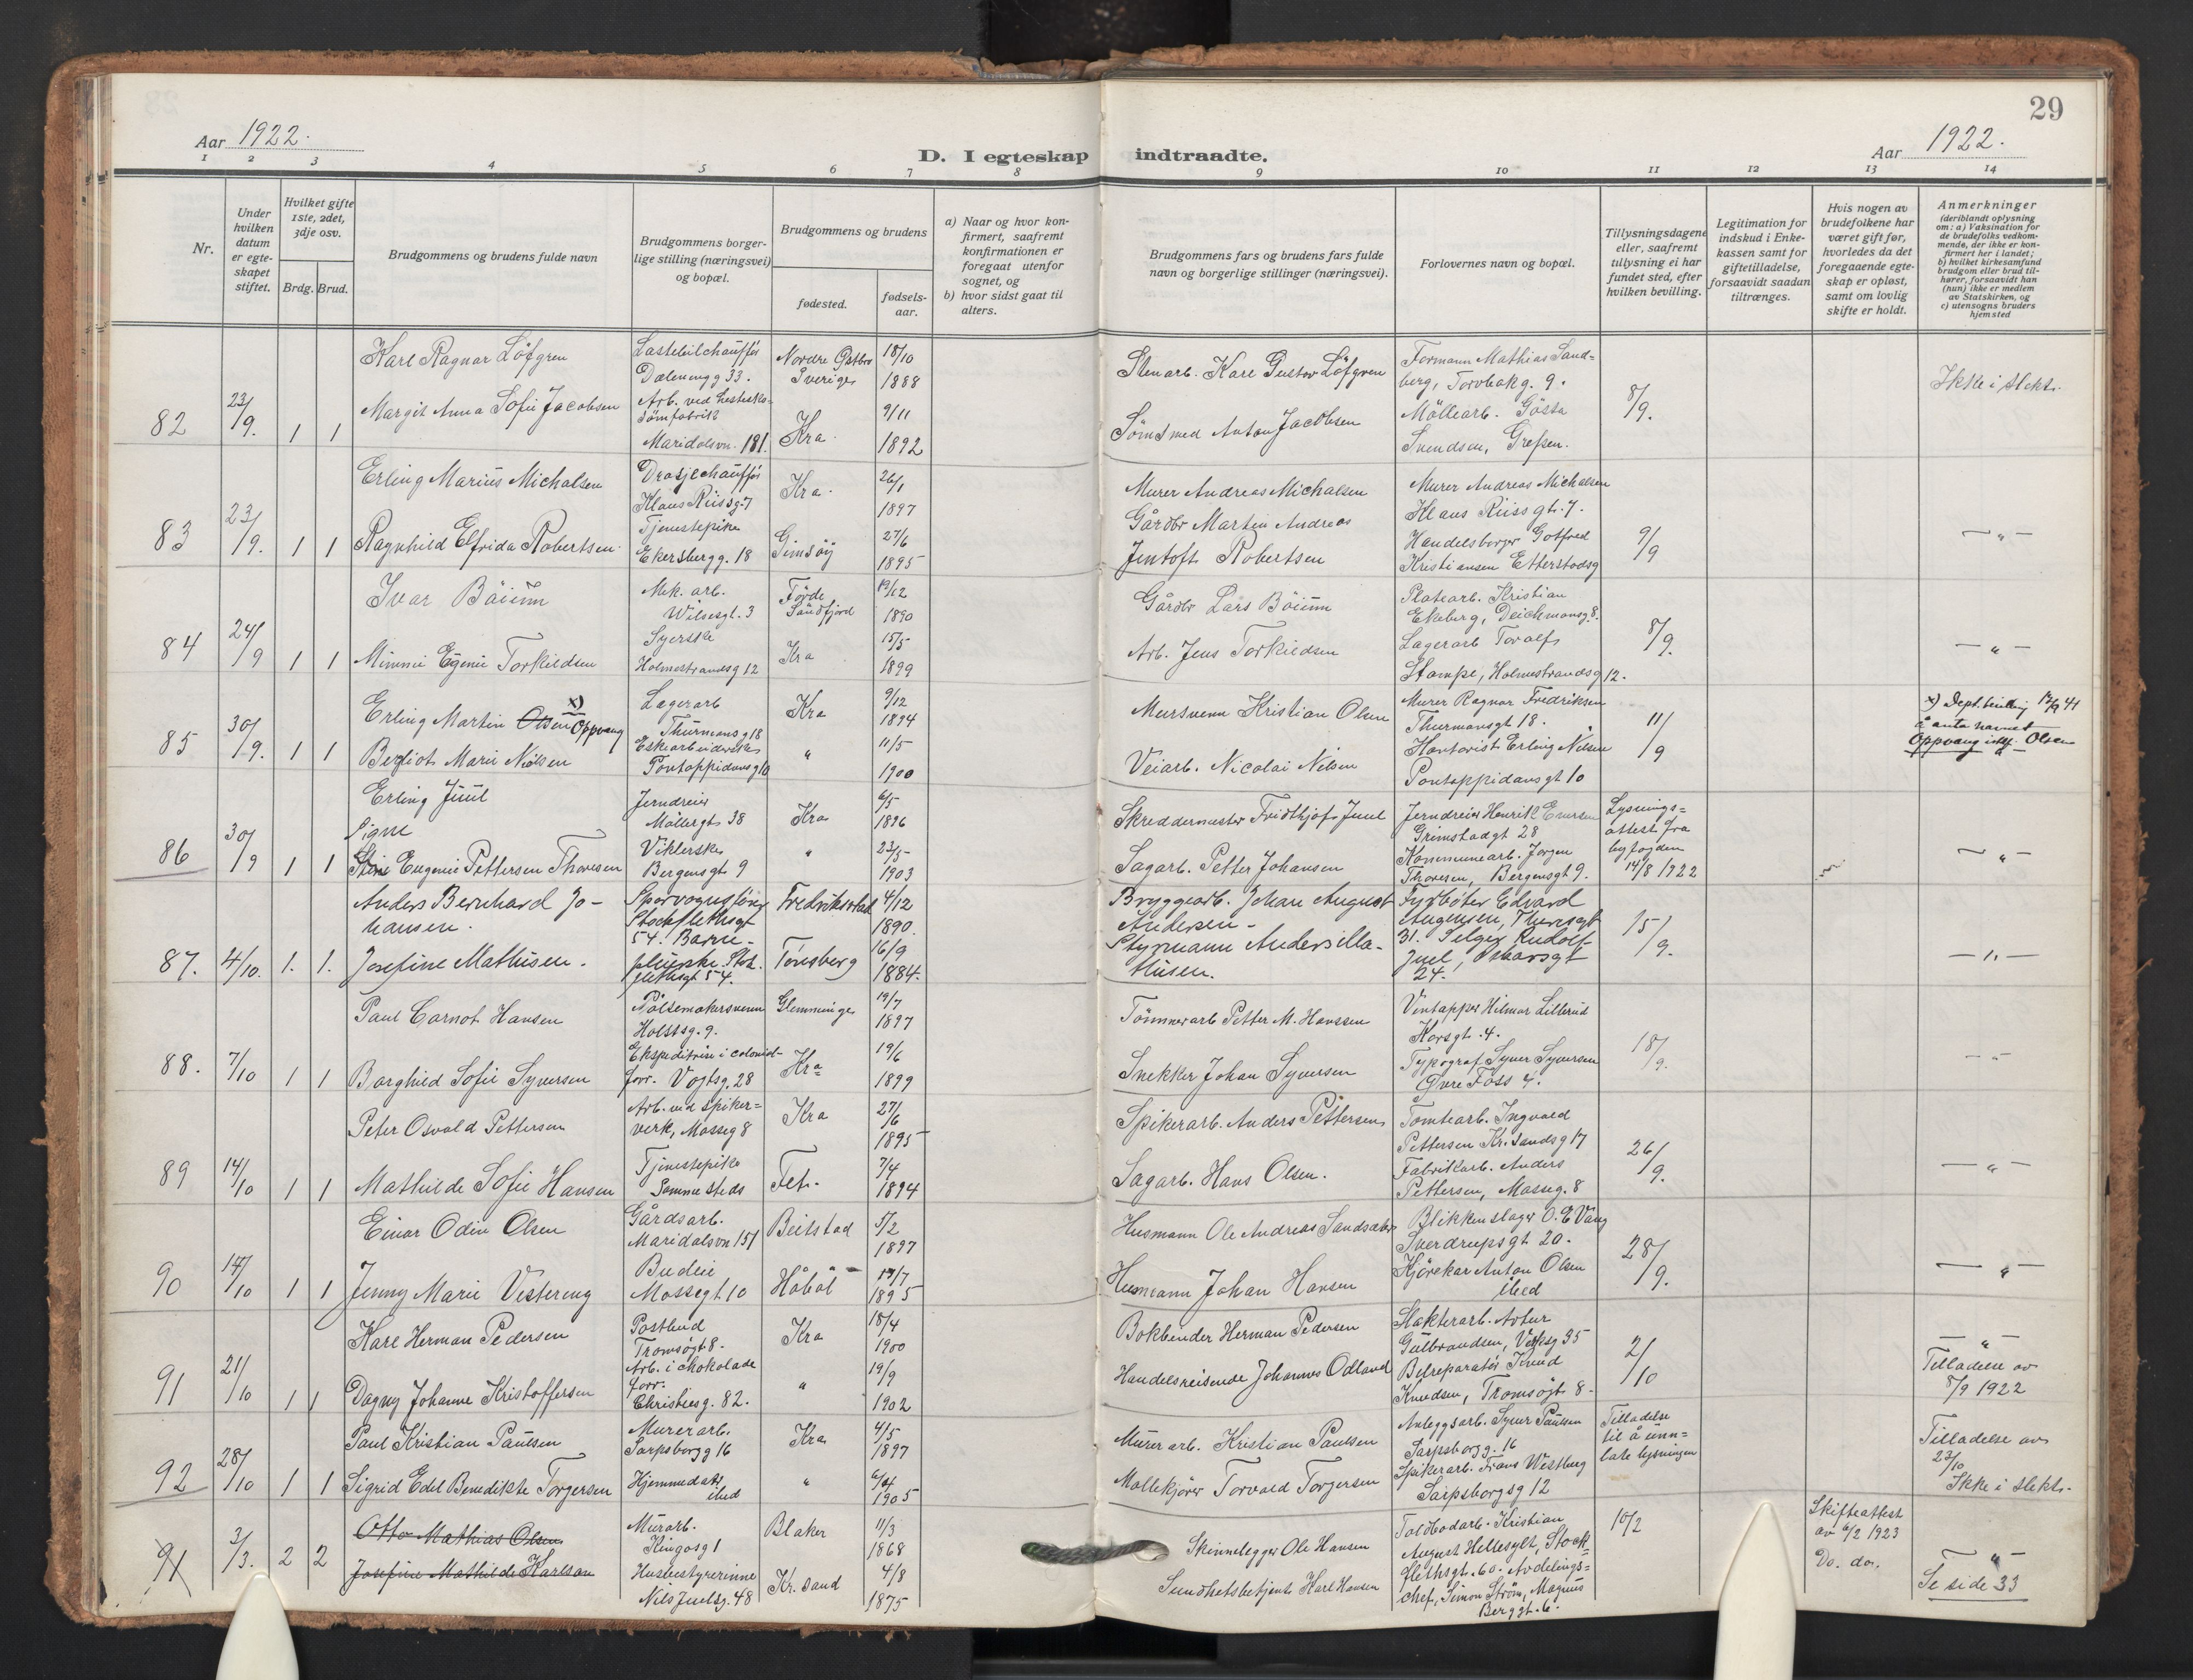 29
Aar 1922.
D. I egteskap indtraadte.
Aar 1922.
1 2 3 4 5 6 7 8 9 10 11 12 13 14
Nr.
Under hvilken datum er egteskapet stiftet.
Hvilket gifte 1ste, 2det, 3dje osv.
Brdg. Brud.
Brudgommens og brudens fulde navn
Brudgommens borgerlige stilling (næringsvei) og bopæl.
Brudgommens og brudens
fødested.
fødselsaar.
a) Naar og hvor konfirmert, saafremt konfirmationen er foregaat utenfor sognet, og
b) hvor sidst gaat til alters.
Brudgommens fars og brudens fars fulde navn og borgerlige stillinger (næringsvei).
Forlovernes navn og bopæl.
Tillysningsdagene eller, saafremt tillysning ei har fundet sted, efter hvilken bevilling.
Legitimation for indskud i Enkekassen samt for giftetilladelse, forsaavidt saadan tiltrænges.
Hvis nogen av brudefolkene har været gift før, hvorledes da det foregaaende egteskap er opløst, samt om lovlig skifte er holdt.
Anmerkninger
(deriblandt oplysning om: a) Vaksination for de brudefolks vedkommende, der ikke er konfirmert her i landet;
b) hvilket kirkesamfund brudgom eller brud tilhører, forsaavidt han (hun) ikke er medlem av Statskirken, og
c) utensogns bruders hjemsted
82 23/9. 1 1
Karl Ragnar Löfgren
Lastebilchauffør
Dælenengg 33.
Sverige
18/10 1888
Stenarb. Karl Gustav Löfgren
Formann Mathias Sandberg, Torvbakg. 9.
8/9.
Ikke i slekt.
Margit Anna Sofie Jacobsen
Arb. ved hesteskosømfabrik
Maridalsvn. 181.
Kra.
9/11 1892
Sømsmed Anton Jacobsen
Møllearb. Gösta Svendsen, Grefsen.
83 23/9. 1 1
Erling Marius Michalsen
Drosjechauffør
Klaus Riissg. 7
Kra.
26/1 1897
Murer Andreas Michalsen
Murer Andreas Michalsen
Klaus Riissgt. 7.
9/9
— " —
Ragnhild Elfrida Robertsen.
Tjenestepike
Ekersbergg. 18
Gimsøy
27/6 1895
Gårdbr Martin Andreas Jentoft Robertsen
Handelsborger Gotfred Kristiansen Etterstadsg
84 24/9 1 1
Ivar Böium
Mek. arb.
Wilsesgt. 3
Førde Sundfjord
19/12 1890
Gårdbr Lars Böium
Platearb. Kristian Ekeberg, Deichmansg 8.
8/9.
— " —
Mimmi Eugenie Torkildsen
Syerske
Holmestrandsg 12
Kra
15/5 1899
Arb. Jens Torkildsen
Lagerarb Toralf Stampe, Holmestrandsg 12.
85 30/9. 1 1
Erling Martin Olsen x) Oppvang
Lagerarb
Thurmansg 18
Kra
9/12 1894
Mursvenn Kristian Olsen
Murer Ragnar Fredriksen
Thurmansgt 18.
11/9
x) Dept. bevilling 12/9 41
å anta navnet
Oppvang istf. Olsen
Bergliot Marie Nilsen
Eskearbeiderske
Pontoppidansg 10
"
11/5 1900
Veiarb. Nicolai Nilsen
Kontorist Erling Nilsen
Pontoppidansgt 10
86 30/9 1 1
Erling Juul
Jerndreier
Møllergt 38
Kra
6/5 1896
Skreddermester Fridthjof Juul
Jerndreier Henrik Evensen
Grimstadgt 28
Lysningsattest fra byfogden 14/8 1922
— " —
Signe
Eugenie Pettersen Thoresen
Viklerske
Bergensgt 9
"
23/5 1903
Sagarb. Petter Johansen
Kommunearb. Jørgen Thoresen, Bergensgt 9.
87. 4/10. 1. 1.
Anders Bernhard Johansen.
Sporvognsfører
Stockflethsgt 54.
Fredrikstad
4/12 1890.
Bryggearb. Johan August Andersen -
Fyrbøter Edvard
31.
15/9.
— " —
Josefine Mathisen.
Barnepleierske. Stockflethsgt 54.
Tønsberg
16/9 1884.
Styrmann Anders Mathisen.
Selger Rudolf Juel, Oskarsgt 24.
88. 7/10 1 1
Paul Carnot Hansen
Pølsemakersvenn
Holstsg. 9.
Glemminge
19/7 1897
Tømmerarb Petter M. Hanssen
Vintapper Hilmar Lillerud
Korsgt. 4.
18/9.
— " —
Borghild Sofie Syversen
Ekspeditrise i colonialforr. Vogtsg. 28
Kra
19/6 1899
Snekker Johan Syversen
Typograf Syver Syversen
Øvre Foss 4.
89 14/10 1 1
Peter Osvald Pettersen
Arb. ved spikerverk, Mosseg 8
Kra
27/6 1895
Spikerarb. Anders Pettersen
Tomtearb. Ingvald Pettersen Kr.sandsg 17
26/9.
— " —
Mathilde Sofie Hansen
Tjenestepike
Samme steds
Fet.
7/4 1894
Sagarb. Hans Olsen.
Fabrikarb. Anders Pettersen, Mosseg. 8
90 14/10 1 1
Einar Odin Olsen
Gårdsarb.
Maridalsvn 151
Beitstad
5/2 1897
Husmann Ole Andreas
Blikkenslager O. E Vang
Sverdrupsgt 20.
28/9.
— " —
Jenny Marie Vestereng
Budeie
Mossegt. 10
Håbøl
17/7 1895
Husmann Johan Hansen
Kjørekar Anton Olsen
ibid
91 21/10 1 1
Karl Herman Pedersen
Postbud
Tromsøgt. 8.
Kra
18/4 1900
Bokbinder Herman Pedersen
Slakterarb. Artur Gulbrandsen, Verksg 35
2/10
— " —
Tilladelse av
8/9 1922
Dagny Johanne Kristoffersen
Arb. i chokoladeforr.
Christiesg. 82.
"
19/9 1902
Handelsreisende Johannes Odland
Bilreparatør Knud Knudsen, Tromsøgt 8.
92 28/10 1 1
Paul Kristian Paulsen
Murerarb.
Sarpsborgg 16
Kra
4/5 1897
Murerarb. Kristian Paulsen
Anleggsarb. Syver Paulsen
Sarpsborgg. 16
Tilladelse til å unnlate lysningen
Tilladelse av
23/10
Ikke i slekt.
Sigrid Edel Benedikte Torgersen
Hjemmedatt. ibid
"
6/4 1905
Møllekjører Torvald Torgersen
Spikerarb. Frans Westberg
Sarpsborgsg 12
91 3/3. 2 2
Otto Mathias Olsen
Murarb.
Kingosg 1
Blaker
11/3 1868
Skinnelegger Ole Hansen
Toldbodarb. Kristian August Hellesylt, Stockflethsgt. 60.
10/2
Skifteattest
av 6/2 1923
— " —
Josefine Mathilde Karlsen
Husbestyrerinne
Nils Juelsg. 48
Kr. sand
4/8 1875
Sundhetsbetjent Karl Hansen
Avdelingschef, Simon Strøm, Magnus Berggt. 6.
Do. do.
Se side 33